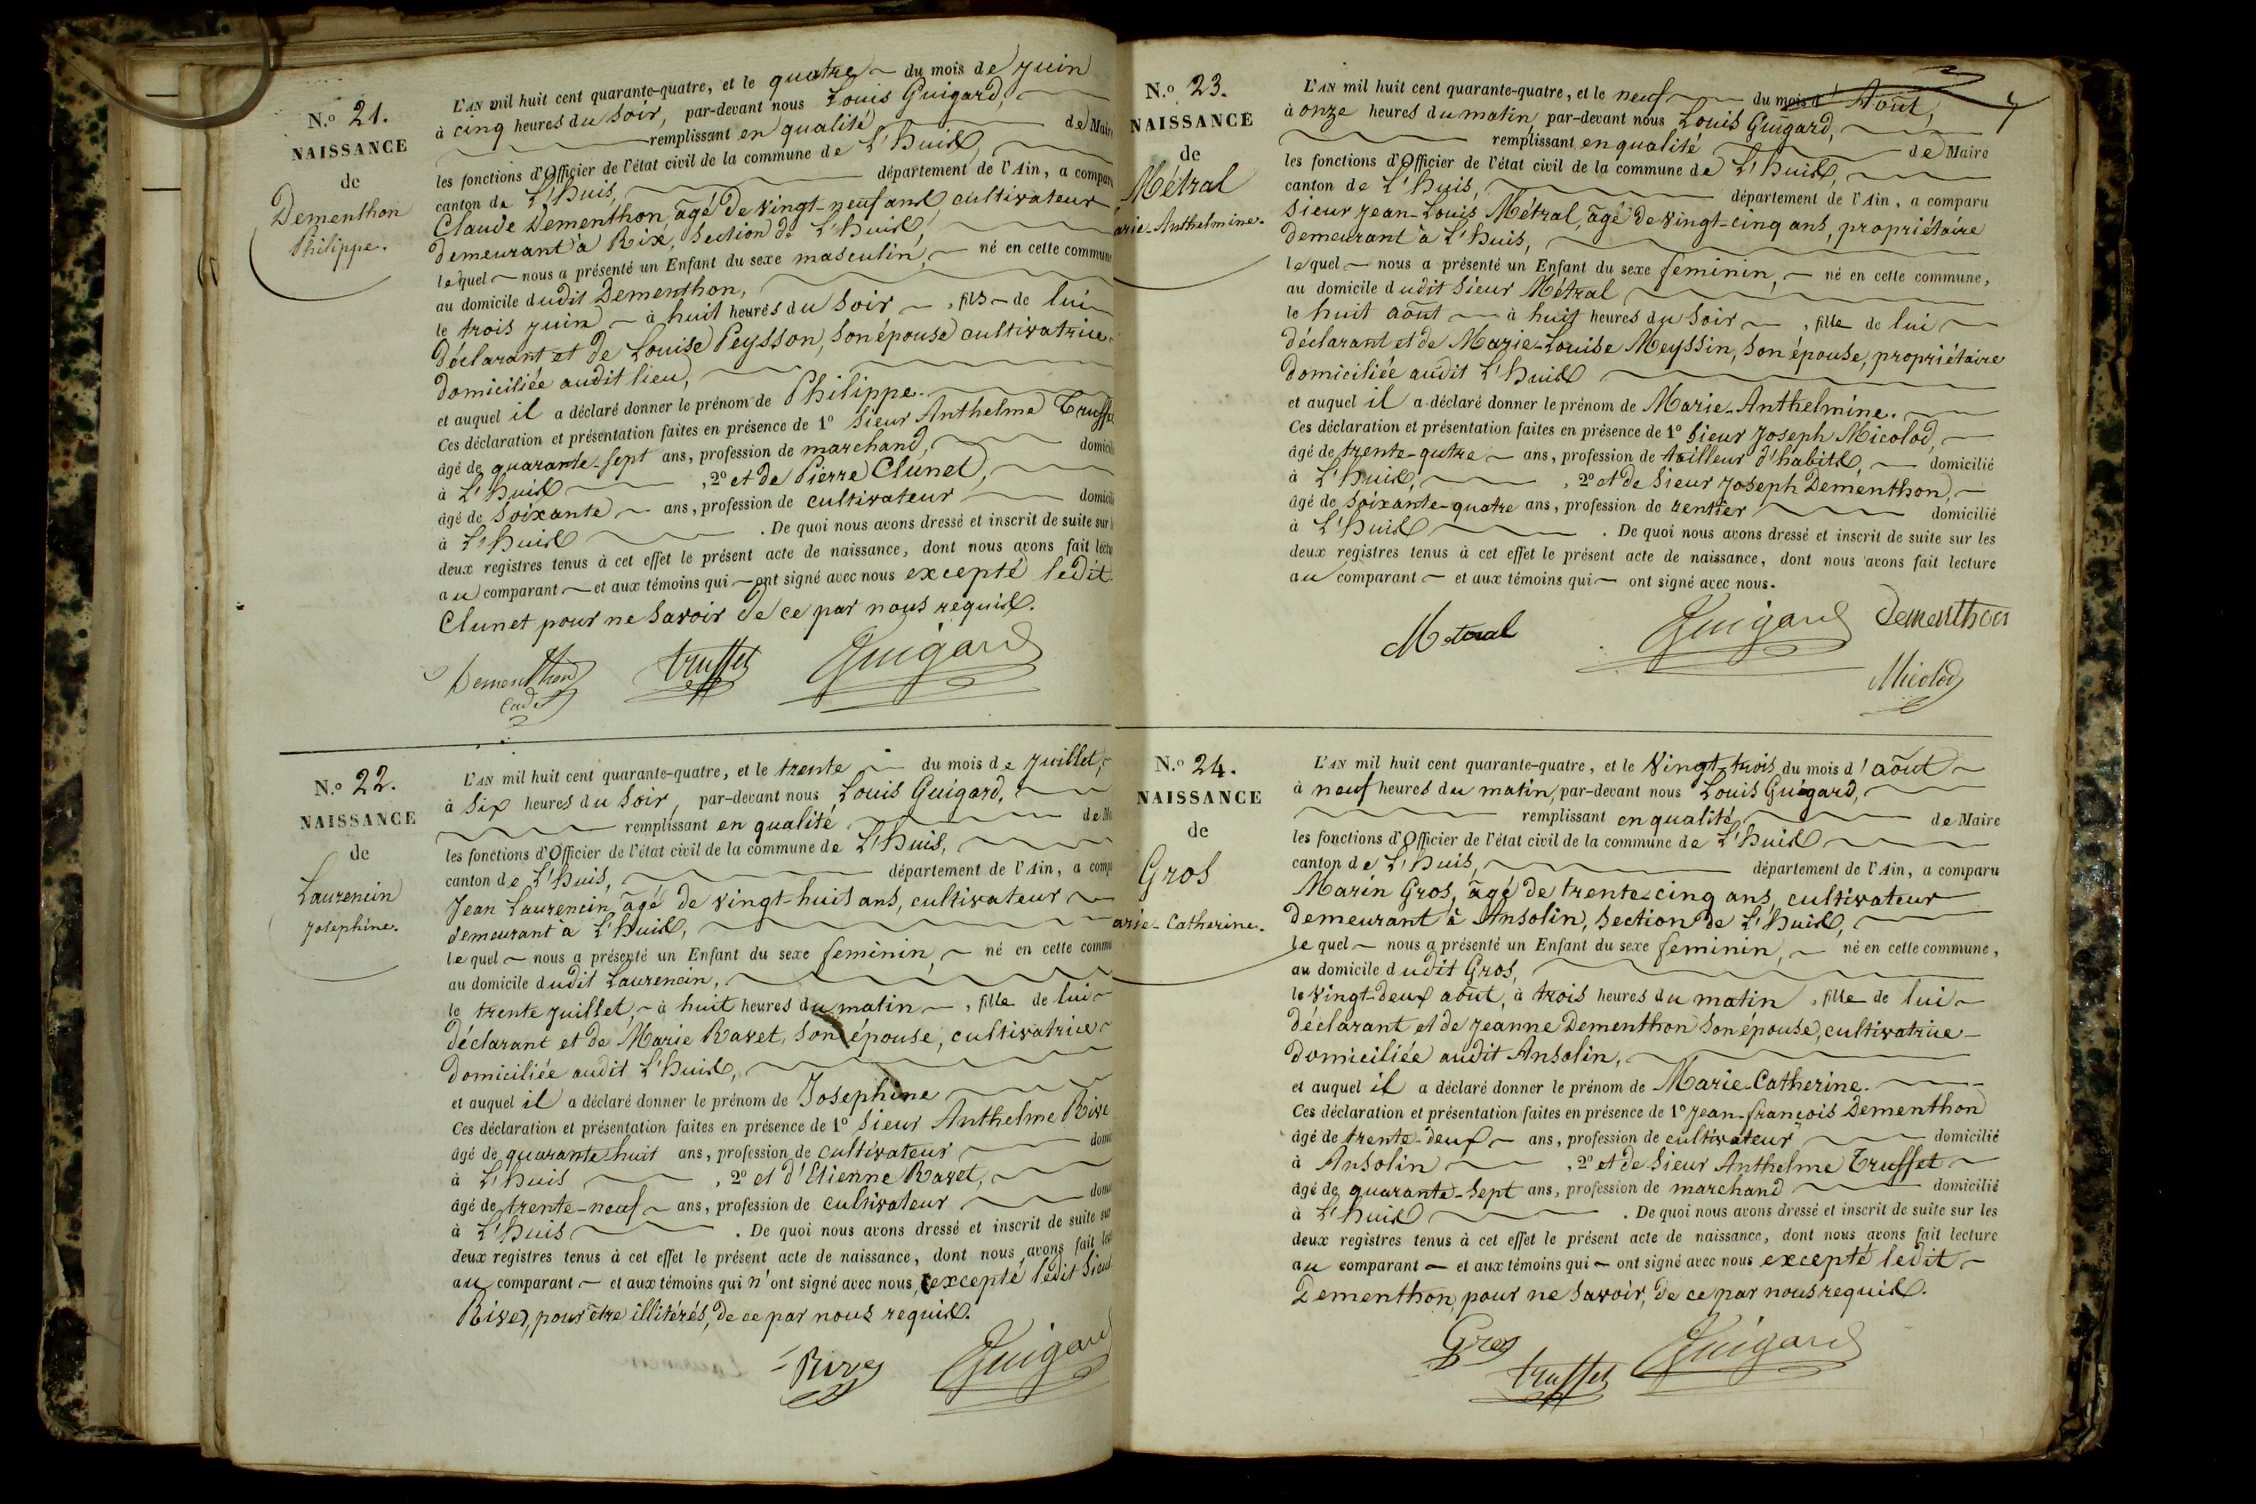 N.º 21.
NAISSANCE
de
Dementhon
Philippe.
L'AN mil huit cent quarante-quatre, et le quatre du mois de juin
à cinq heures du soir, par-devant nous Louis Guigard,
remplissant en qualité de Maire
les fonctions d'Officier de l'état civil de la commune de L'huis,
canton de L'huis, département de l'Ain, a comparu
Claude Dementhon, âgé de vingt-neuf ans, cultivateur
demeurant à Rix, section de L'huis,
lequel nous a présenté un Enfant du sexe masculin, né en cette commune
au domicile dudit Dementhon,
le trois juin à huit heures du soir, fils de lui
déclarant et de Louise Peysson, son épouse cultivatrice
domiciliée audit lieu,
et auquel il a déclaré donner le prénom de Philippe.
Ces déclaration et présentation faites en présence de 1º Sieur Anthelme Truffet
âgé de quarante-sept ans, profession de marchand, domicilié
à L'huis, 2º et de Pierre Clunet,
âgé de soixante ans, profession de cultivateur domicilié
à L'huis. De quoi nous avons dressé et inscrit de suite sur
deux registres tenus à cet effet le présent acte de naissance, dont nous avons fait lecture
au comparant et aux témoins qui ont signé avec nous excepté ledit
Clunet pour ne savoir de ce par nous requis.
Dementhon cadet truffet Guigard
N.º 22.
NAISSANCE
de
Laurencin
Josephine.
L'AN mil huit cent quarante-quatre, et le trente du mois de juillet,
à six heures du soir, par-devant nous Louis Guigard,
remplissant en qualité de
les fonctions d'Officier de l'état civil de la commune de L'huis,
canton de L'huis, département de l'Ain, a comp
Jean Laurencin, âgé de vingt-huit ans, cultivateur
demeurant à L'huis,
lequel nous a présenté un Enfant du sexe feminin, né en cette comm
au domicile dudit Laurencin,
le trente juillet, à huit heures du matin, fille de lui
déclarant et de Marie Ravet, son épouse, cultivatrice
domiciliée audit L'huis,
et auquel il a déclaré donner le prénom de Josephine
Ces déclaration et présentation faites en présence de 1º Sieur Anthelme Rive
âgé de quarante huit ans, profession de cultivateur dom
à L'huis, 2º et d'Etienne Ravet,
âgé de trente-neuf ans, profession de cultivateur dom
à L'huis. De quoi nous avons dressé et inscrit de suite sur
deux registres tenus à cet effet le présent acte de naissance, dont nous avons fait lec
au comparant et aux témoins qui n'ont signé avec nous, excepté ledit Sieur
Rive, pour être illitérés, de ce par nous requis.
Rive Guigard
N.º 23.
NAISSANCE
de
Métral
arie-Anthelmine.
L'AN mil huit cent quarante-quatre, et le neuf du mois d'Août,
à onze heures du matin, par-devant nous Louis Guigard,
remplissant en qualité de Maire
les fonctions d'Officier de l'état civil de la commune de L'huis,
canton de L'huis, département de l'Ain, a comparu
Sieur Jean-Louis Métral, âgé de vingt-cinq ans, propriétaire
demeurant à L'huis,
lequel nous a présenté un Enfant du sexe feminin, né en cette commune,
au domicile dudit Sieur Métral
le huit août à huit heures du soir, fille de lui
déclarant et de Marie-Louise Meyssin, son épouse, propriétaire
domiciliée audit L'huis
et auquel il a déclaré donner le prénom de Marie-Anthelmine.
Ces déclaration et présentation faites en présence de 1º Sieur Joseph Micolod,
âgé de trente-qutre ans, profession de tailleur d'habits, domicilié
à L'huis, 2º et de Sieur Joseph Dementhon,
âgé de soixante-quatre ans, profession de rentier domicilié
à L'huis. De quoi nous avons dressé et inscrit de suite sur les
deux registres tenus à cet effet le présent acte de naissance, dont nous avons fait lecture
au comparant et aux témoins qui ont signé avec nous.
Metral Guigard Dementhon
Micolod
N.º 24.
NAISSANCE
de
Gros
arie-Catherine.
L'AN mil huit cent quarante-quatre, et le Vingt-trois du mois d'août
à neuf heures du matin, par-devant nous Louis Guigard,
remplissant en qualité de Maire
les fonctions d'Officier de l'état civil de la commune de L'huis
canton de L'huis, département de l'Ain, a comparu
Marin Gros, âgé de trente-cinq ans, cultivateur
demeurant à Ansolin, section de L'huis,
lequel nous a présenté un Enfant du sexe feminin, né en cette commune,
au domicile dudit Gros,
le vingt-deux août, à trois heures du matin, fille de lui
déclarant et de Jeanne Dementhon son épouse, cultivatrice
domiciliée audit Ansolin,
et auquel il a déclaré donner le prénom de Marie-Catherine.
Ces déclaration et présentation faites en présence de 1º Jean-françois Dementhon
âgé de trente-deux ans, profession de cultivateur domicilié
à Ansolin, 2º et de Sieur Anthelme Truffet
âgé de quarante-sept ans, profession de marchand domicilié
à L'huis. De quoi nous avons dressé et inscrit de suite sur les
deux registres tenus à cet effet le présent acte de naissance, dont nous avons fait lecture
au comparant et aux témoins qui ont signé avec nous excepté ledit
Dementhon, pour ne savoir, de ce par nous requis.
Gros truffet Guigard